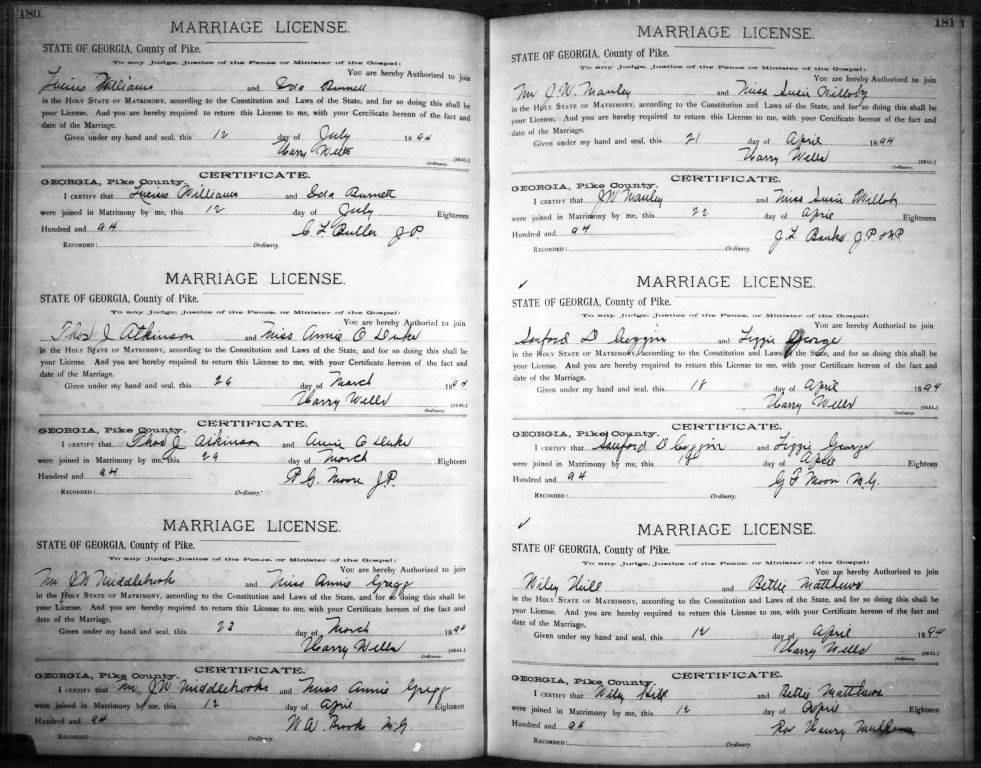 180.
MARRIAGE LICENSE.
STATE OF GEORGIA, County of Pike.
To any Judge, Justice of the Peace or Minister of the Gospel:
You are hereby Authorized to join
Lucius Williams and Eda Burnett
in the HOLY STATE OF MATRIMONY, according to the Constitution and Laws of the State, and for so doing this shall be
your License. And you are hereby required to return this License to me, with your Certificate hereon of the fact and
date of the Marriage.
Given under my hand and seal, this 12 day of July 1894
Harry Wells [SEAL]
Ordinary.
CERTIFICATE.
GEORGIA, Pike County.
I CERTIFY that Lucius Williams and Eda Burnett
were joined in Matrimony by me, this 12 day of July Eighteen
Hundred and 94 C. L. Butler J.P.
RECORDED: Ordinary.
MARRIAGE LICENSE.
STATE OF GEORGIA, County of Pike.
To any Judge, Justice of the Peace, or Minister of the Gospel:
You are hereby Authorized to join
Thos J Atkinson and Miss Annie O
in the HOLY STATE OF MATRIMONY, according to the Constitution and Laws of the State, and for so doing this shall be
your License. And you are hereby required to return this License to me, with your Certificate hereon of the fact and
date of the Marriage.
Given under my hand and seal, this 26 day of March 1894
Harry Wells [SEAL.]
Ordinary.
CERTIFICATE.
GEORGIA, Pike County.
I CERTIFY that Thos J Atkinson and Annie O
were joined in Matrimony by me, this 29 day of March Eighteen
Hundred and 94 P. G. Moore J.P.
RECORDED: Ordinary.
MARRIAGE LICENSE.
STATE OF GEORGIA, County of Pike.
To any Judge, Justice of the Peace, or Minister of the Gospel:
You are hereby Authorized to join
Mr J W Middlebrook and Miss Annie Gregg
in the HOLY STATE OF MATRIMONY, according to the Constitution and Laws of the State, and for so doing this shall be
your License. And you are hereby required to return this License to me, with your Certificate hereon of the fact and
date of the Marriage.
Given under my hand and seal, this 23 day of March 1894
Harry Wells [SEAL]
Ordinary.
CERTIFICATE.
GEORGIA, Pike County.
I CERTIFY that Mr J W Middlebrooks and Miss Annie Gregg
were joined in Matrimony by me, this 12 day of April Eighteen
Hundred and 94 W. W. Brook M.G.
RECORDED: Ordinary.
181
MARRIAGE LICENSE.
STATE OF GEORGIA, County of Pike.
To any Judge, Justice of the Peace, or Minister of the Gospel:
You are hereby Authorized to join
Mr J. W. Manley and Miss Susie Willoby
in the HOLY STATE OF MATRIMONY, according to the Constitution and Laws of the State, and for so doing this shall be
your License. And you are hereby required to return this License to me, with your Certificate hereon of the fact and
date of the Marriage.
Given under my hand and seal, this 21 day of April 1894
Harry Wells [SEAL]
Ordinary.
CERTIFICATE.
GEORGIA, Pike County.
I CERTIFY that J W Manley and Miss Susie Willoby
were joined in Matrimony by me, this 22 day of April Eighteen
Hundred and 94 J. L. Banks J.P. & N.P.
RECORDED: Ordinary.
MARRIAGE LICENSE.
STATE OF GEORGIA, County of Pike.
To any Judge, Justice of the Peace, or Minister of the Gospel:
You are hereby Authorized to join
Sanford D Coggin and Lizzie George
in the HOLY STATE OF MATRIMONY, according to the Constitution and Laws of the State, and for so doing this shall be
your License. And you are hereby required to return this License to me, with your Certificate hereon of the fact and
date of the Marriage.
Given under my hand and seal, this 18 day of April 1894
Harry Wells [SEAL.]
Ordinary.
CERTIFICATE.
GEORGIA, Pike County.
I CERTIFY that Sanford D Coggin and Lizzie George
were joined in Matrimony by me, this day of April Eighteen
Hundred and 94 G F Moon M.G.
RECORDED: Ordinary.
MARRIAGE LICENSE.
STATE OF GEORGIA, County of Pike.
To any Judge, Justice of the Peace, or Minister of the Gospel:
You are hereby Authorized to join
Wiley Hill and Bettie Matthews
in the HOLY STATE OF MATRIMONY, according to the Constitution and Laws of the State, and for so doing this shall be
your License. And you are hereby required to return this License to me, with your Certificate hereon of the fact and
date of the Marriage.
Given under my hand and seal, this 12 day of April 1894
Harry Wells [SEAL]
Ordinary.
CERTIFICATE.
GEORGIA, Pike County.
I CERTIFY that Wiley Hill and Bettie Matthews
were joined in Matrimony by me, this 12 day of April Eighteen
Hundred and 94 Rev Henry
RECORDED: Ordinary.